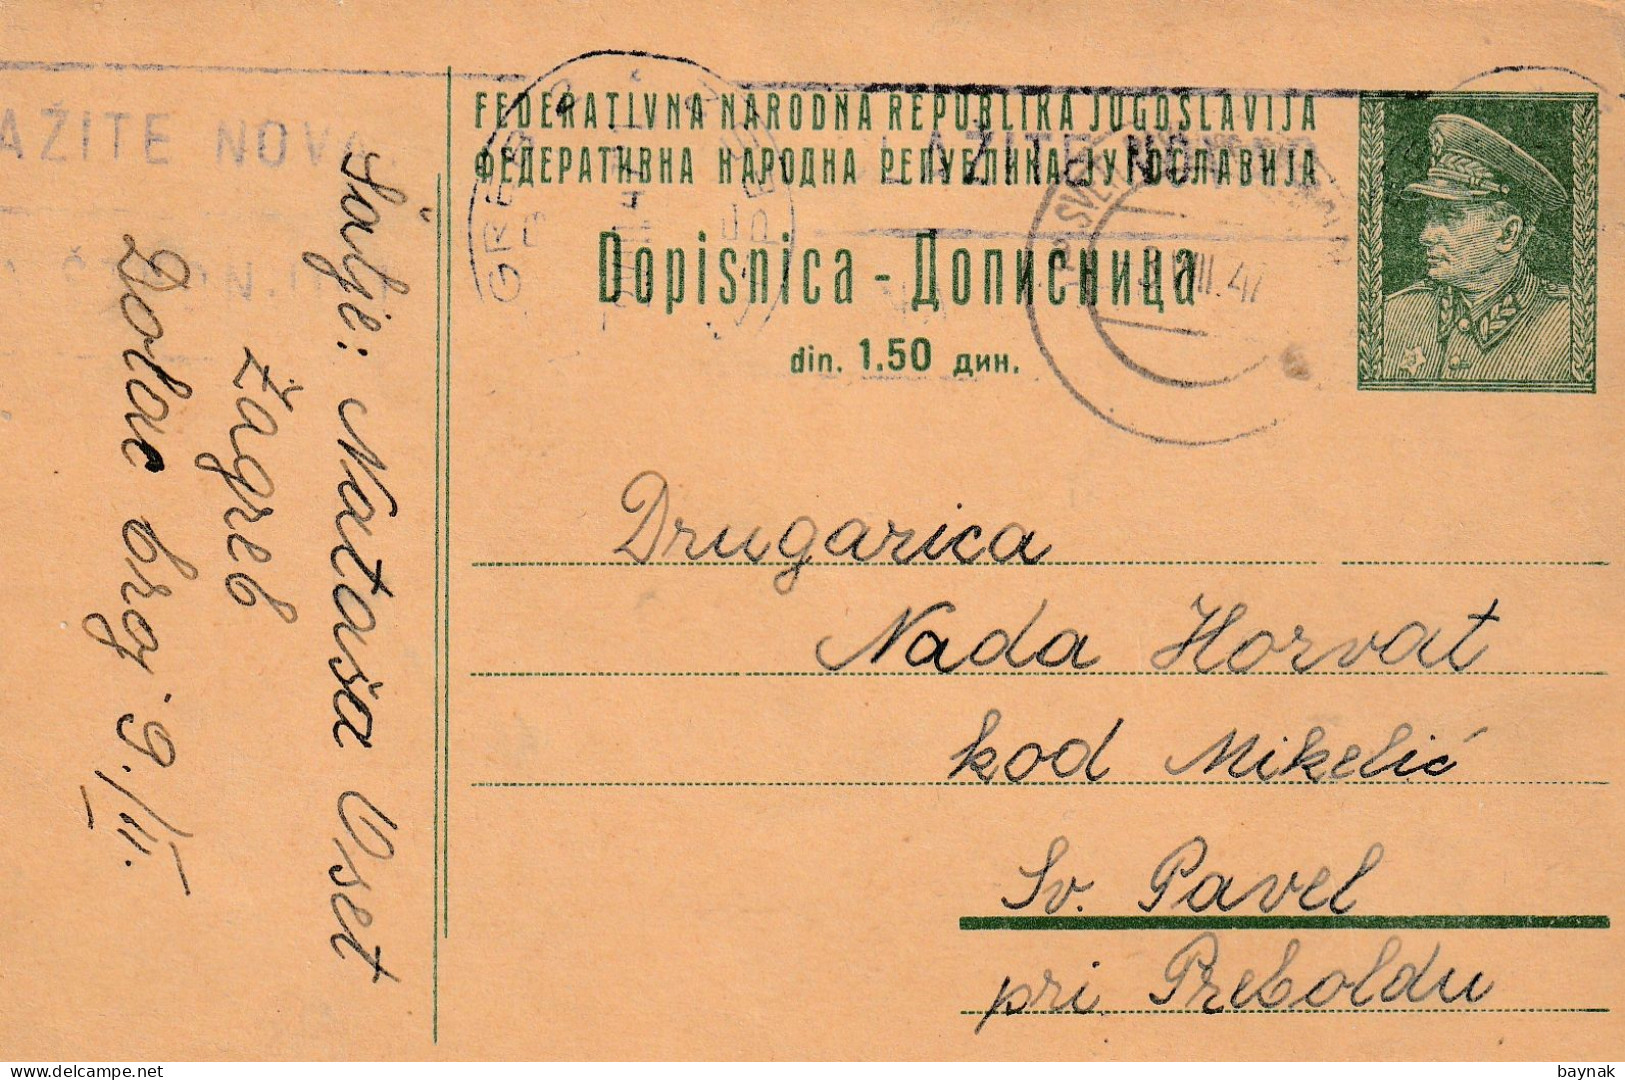 FEDERATIVNA NARODNA REPUBLIKA JUGOSLAVIJA
ФЕДЕРАТИВНА НАРОДНА РЕПУБЛИКА ЈУГОСЛАВИЈА
Dopisnica - Дописница
din. 1.50 дин.
AŽITE NOVA
LAŽITE NOVA
Šalje: Nataša Uset
Zagreb
Dolac broj 9./III.
Drugarica
Nada Horvat
kod Mikelić
Sv. Pavel
pri Preboldu
www.delcampe.net
baynak